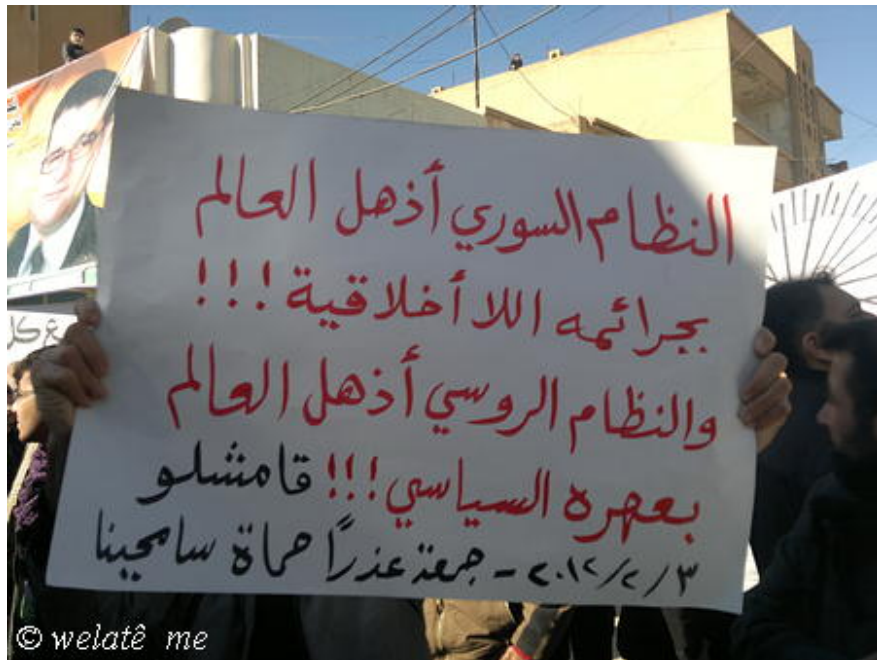 النظام السوري أذهل العالم
بجرائمه اللا أخلاقية !!!
والنظام الروسي أذهل العالم
بعهره السياسي !!! قامشلو
٢٠١٢/٢/٣ - جمعة عذراً حماة سامحينا
ع كل
© welatê me